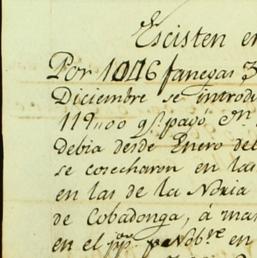 Escisten en
Por 1046 fanegas 3
Diciembre se introdu
119"00 q.s pagó en
debia desde Enero del
se cosecharon en las
en las de la Noria
de Cobadonga, á ma
en el pp.o Nob.re en